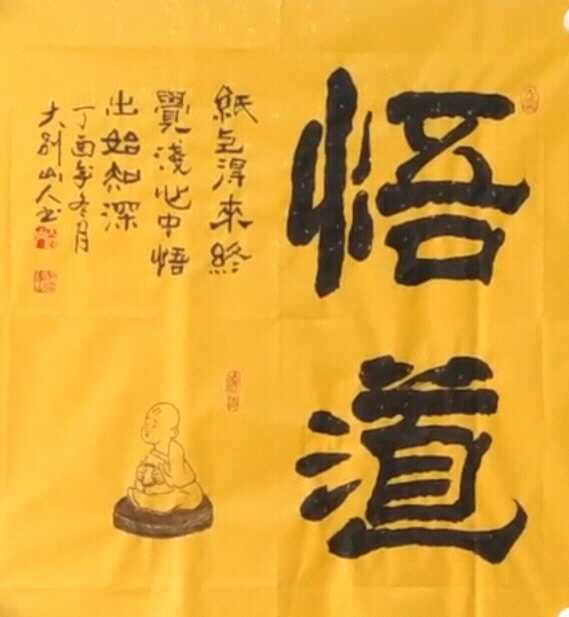 悟道
紙上得來終
覺淺心中悟
出始知深
丁酉年冬月
大别山人书